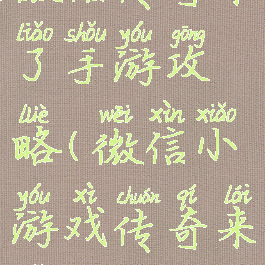 liǎo shǒu yóu gōng
了手游攻
lüè wēi xìn xiǎo
略(微信小
yóu xì chuán qí lái
游戏传奇来